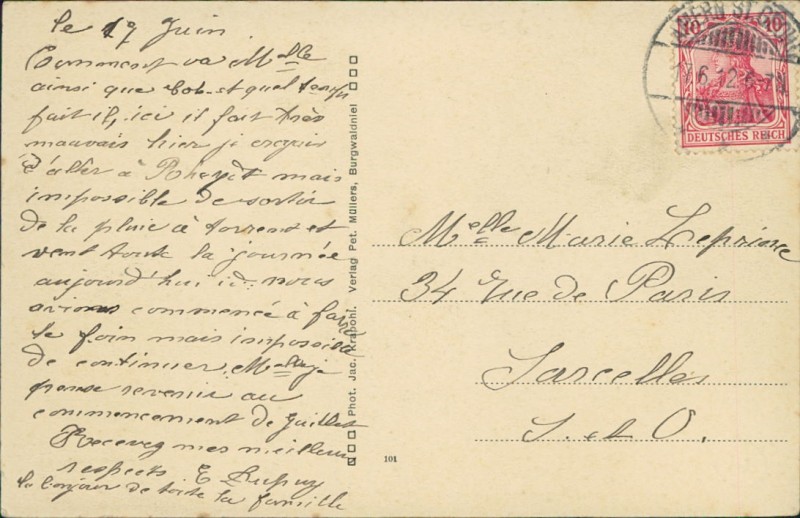 le 17 Juin
Comment va Melle
ainsi que et quel temps
fait il, ici il fait très
mauvais hier je croyais
d'aller à Rheydt mais
impossible de sortir
de la pluie à torrent et
vent toute la journée
aujourd'hui id. nous
avions commencé à faire
le foin mais impossible
de continuer. Melle je
pense revenir au
commencement de Juillet
Recevez mes meilleurs
respects E Dupuy
le bonjour de toute la famille
Phot. Jac. Krapohl. Verlag Pet. Müllers, Burgwaldniel
101
10 10
DEUTSCHES REICH
17.6.12
Melle Marie Leprince
34 Rue de Paris
Sarcelles
S. et O.